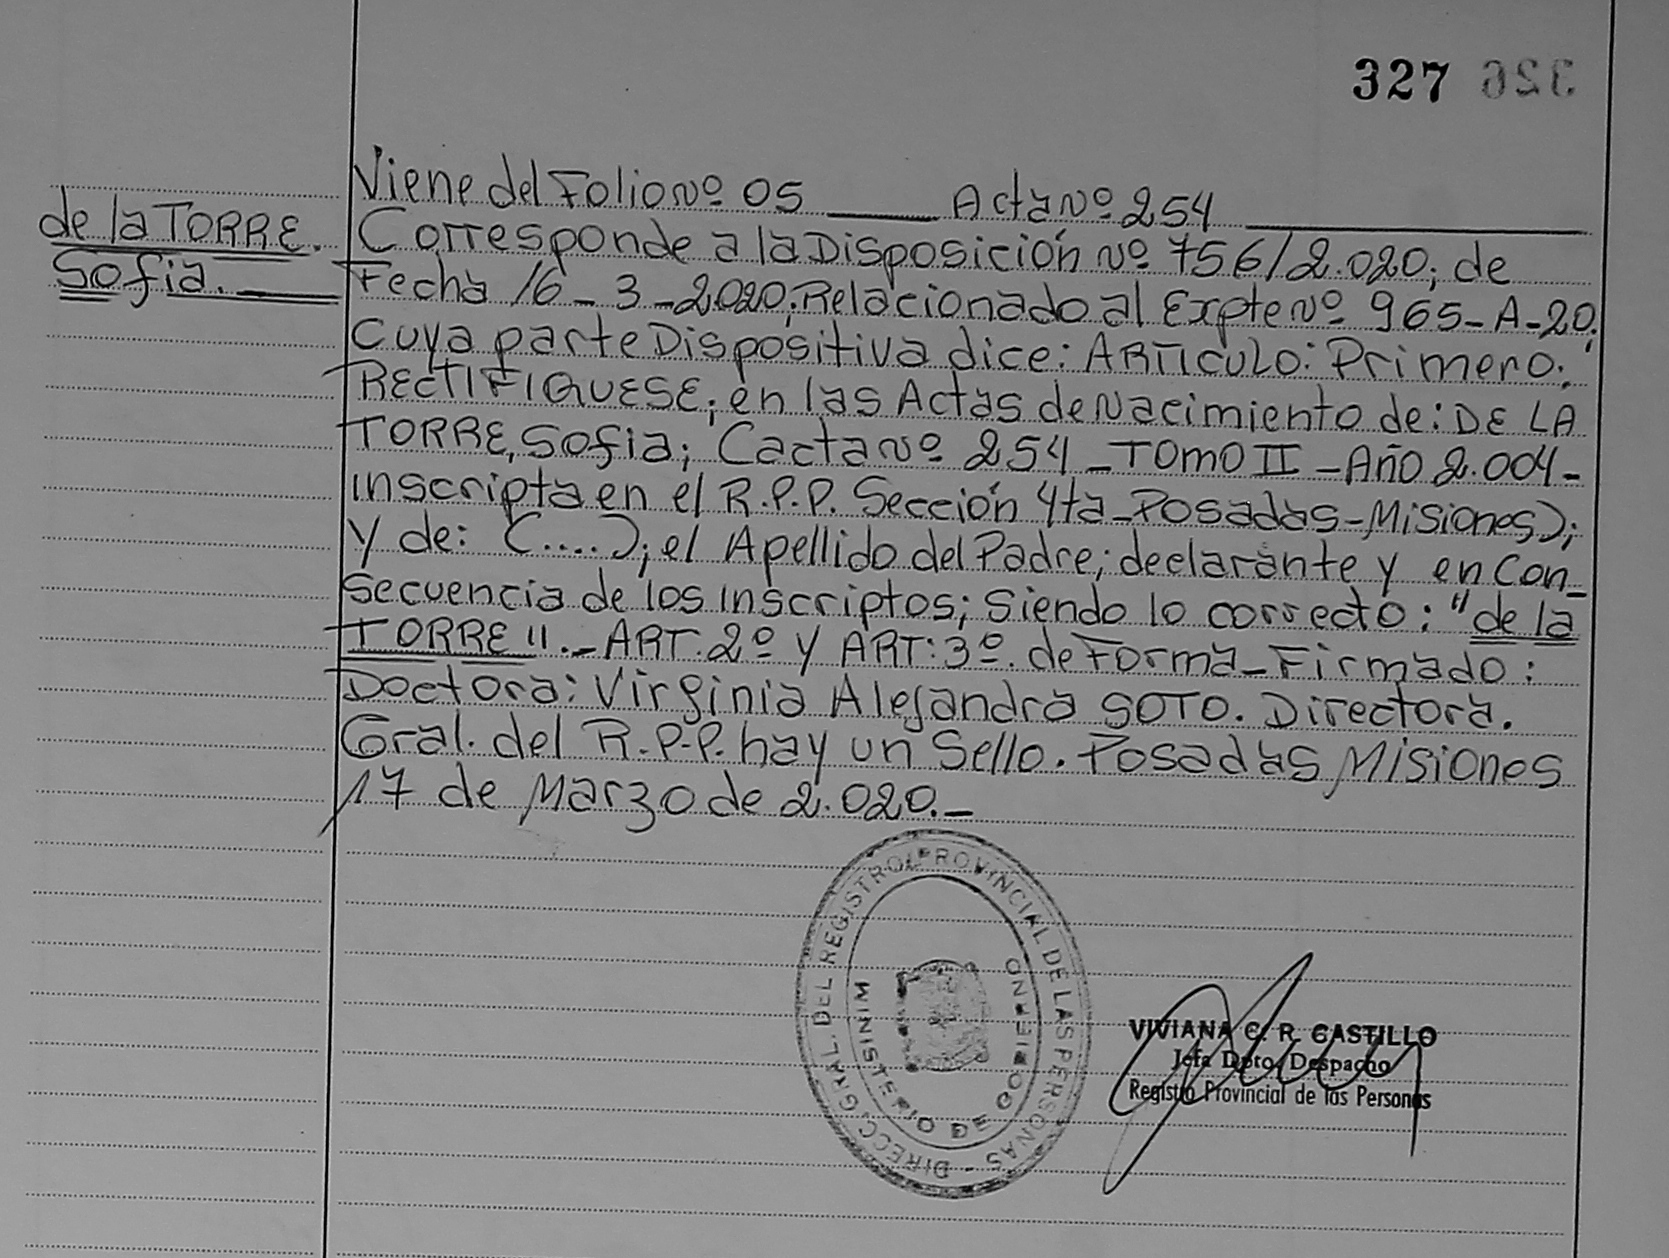 327 326
Viene del Folio Nº 05 ____ Acta Nº 254 ____
de la TORRE.
Sofia. ____
Corresponde a la Disposición Nº 756/2.020; de
Fecha 16-3-2020; Relacionado al Expte Nº 965-A-20;
Cuya parte Dispositiva dice: ARTICULO: Primero:
RECTIFIQUESE; en las Actas de Nacimiento de: DE LA
TORRE, Sofia; (acta Nº 254 - TOMO II - Año 2.004 -
inscripta en el R.P.P. Sección 4ta - Posadas - Misiones);
y de: (....); el Apellido del Padre; declarante y en con_
secuencia de los inscriptos; siendo lo correcto: "de la
TORRE". - ART. 2º y ART: 3º. de Forma - Firmado:
Doctora: Virginia Alejandra SOTO. Directora.
Gral. del R.P.P. hay un Sello. Posadas Misiones
17 de Marzo de 2.020.-
DIRECC. GRAL. DEL REGISTRO PROVINCIAL DE LAS PERSONAS -
MINISTERIO DE GOBIERNO
VIVIANA C. R. CASTILLO
Jefa Dpto. Despacho
Registro Provincial de las Personas